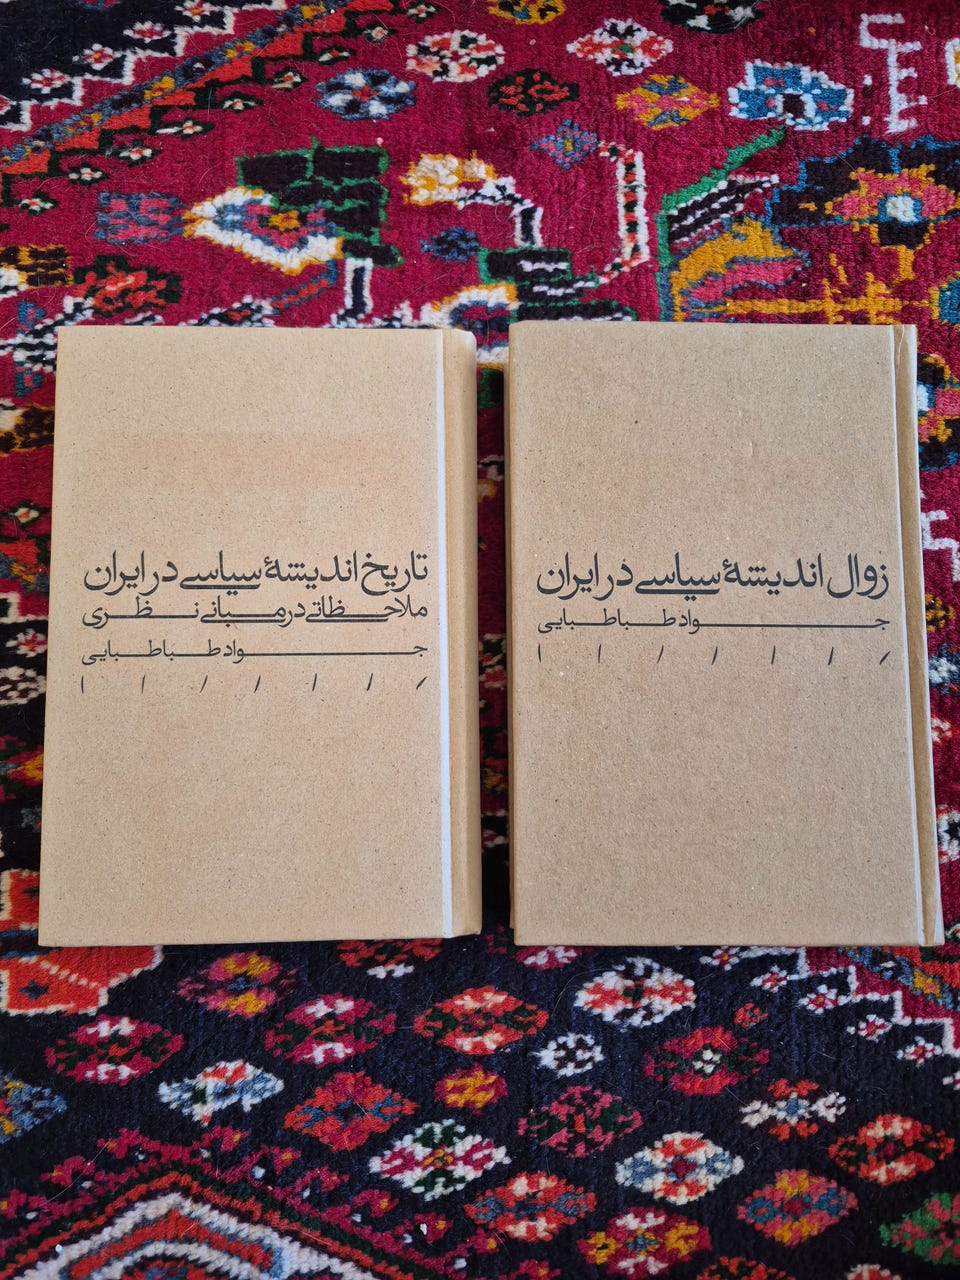 زوال اندیشهٔ سیاسی در ایران
جواد طباطبایی
تاریخ اندیشهٔ سیاسی در ایران
ملاحظاتی در مبانی نظری
جواد طباطبایی